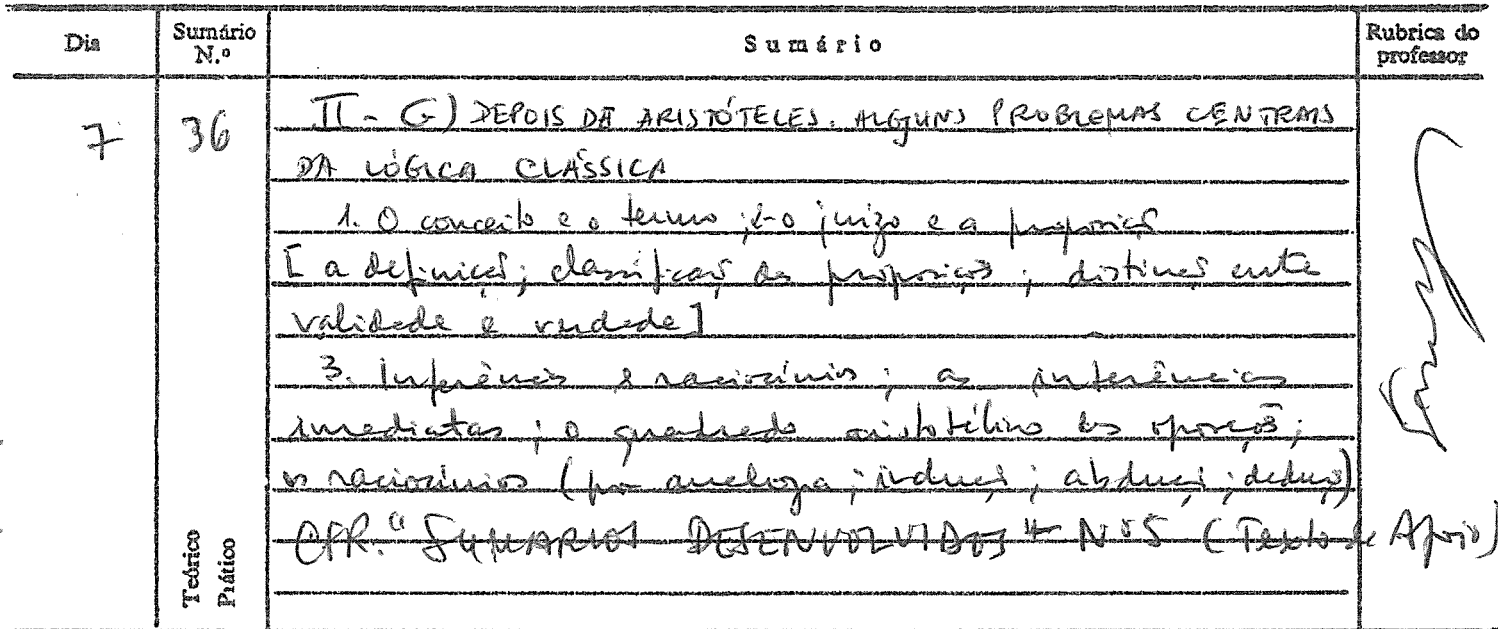 Dia
Sumário N.º
Sumário
Rubrica do professor
7
36
II - G) DEPOIS DE ARISTÓTELES. ALGUNS PROBLEMAS CENTRAIS
DA LÓGICA CLÁSSICA
1. O conceito e o termo; 2-o juízo e a proposição
[a definição; classificação das proposições; distinção entre
validade e verdade]
3. Inferências e raciocínios; as inferências
imediatas; o quadrado aristotélico das oposições;
os raciocínios (por analogia; indução; abdução; dedução)
CFR. "SUMÁRIOS DESENVOLVIDOS" Nº 5 (Texto de Apoio)
Teórico
Prático